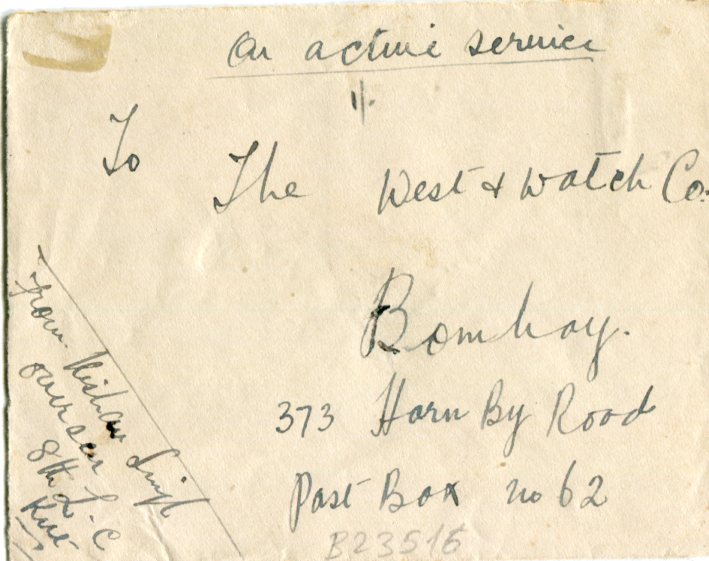 On active service
To
The West & Watch Co.
Bombay.
373 Horn By Road
Post Box no 62
B23515
From Kishan Singh
overseer
8th L.C